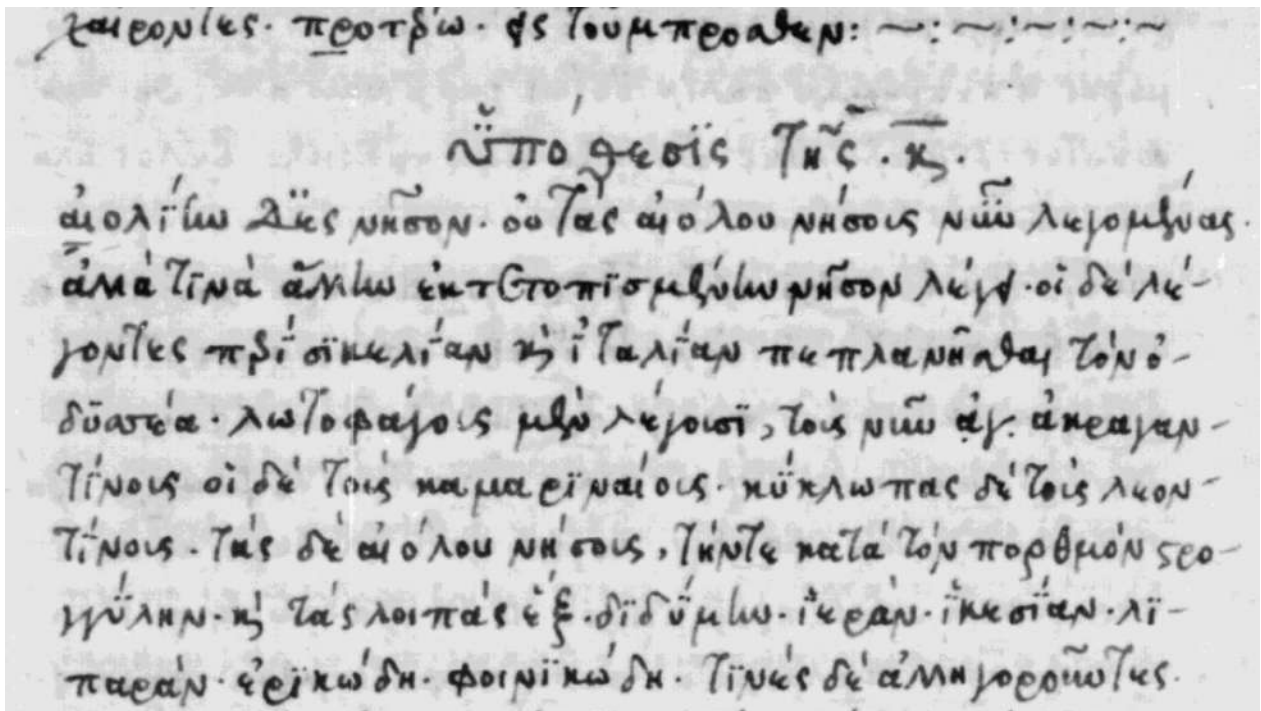 χαίροντες. προτρέπω. εἰς τοὔμπροσθεν: ~:~:~:~:~
ὑπόθεσϊς τῆς .κ.
αἰολΐην δ' ἐς νῆσον. οὐ τὰς αἰόλου νήσοις νῦν λεγομένας.
ἀλλά τινὰ ἄλλην ἐκτετοπϊσμένην νῆσον λέγει. οἱ δὲ λέ-
γοντες περὶ σϊκελίαν κὶ ἰταλίαν πεπλανῆσθαι τὸν ὀ-
δϋσσέα. λωτοφάγοις μὲν λέγουσϊ, τοῖς νῦν ἀκραγαν-
τίνοις οἱ δὲ τοῖς καμαρϊναίοις. κύκλωπας δὲ τοῖς λεον-
τίνοις. τὰς δὲ αἰόλου νήσοις, τήντε κατὰ τὸν πορθμὸν στρο-
γγύλην. κὶ τὰς λοιπὰς ἓξ. δϊδύμην. ἱερὰν. ἱκεσίαν. λϊ-
παρὰν. ἐρϊκώδη. φοινϊκώδη. τϊνὲς δὲ ἀλληγοροῦντες.